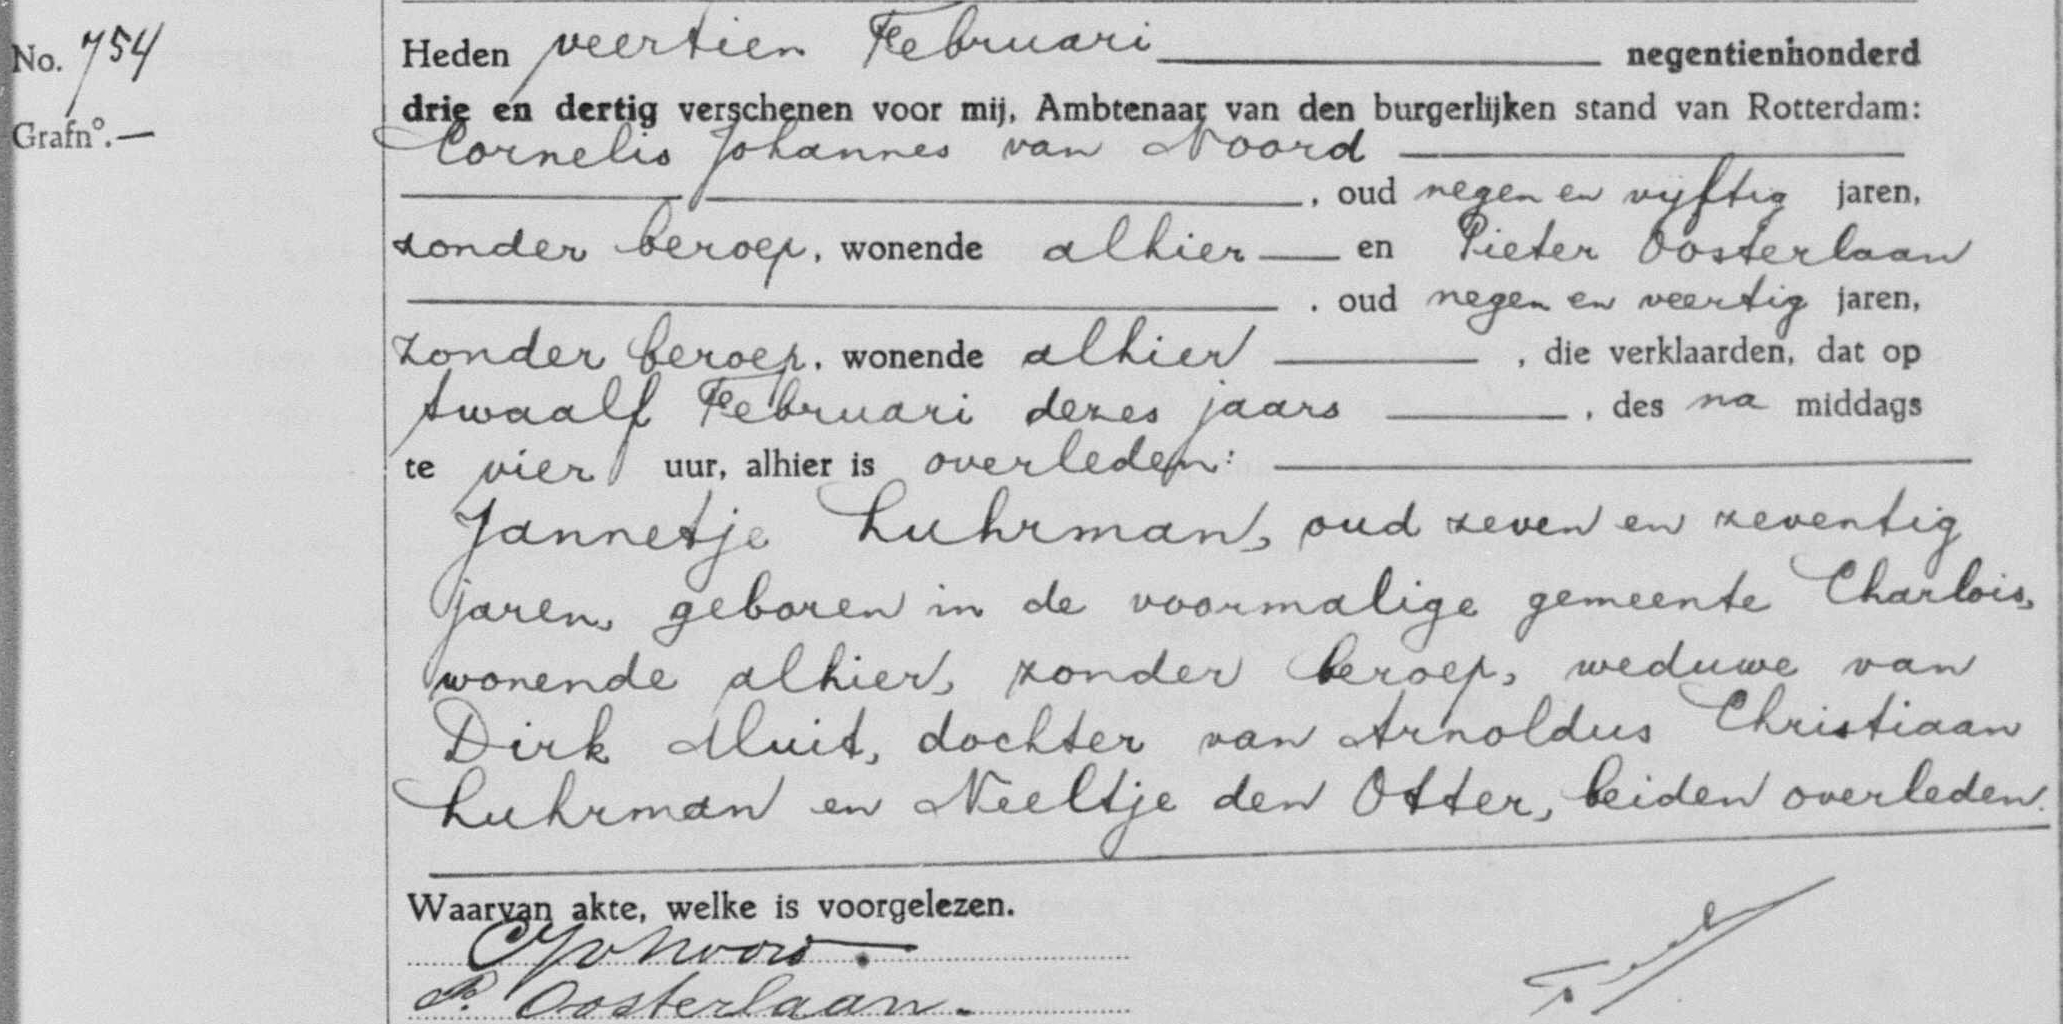 No. 754
Grafnº. —
Heden veertien Februari negentienhonderd
drie en dertig verschenen voor mij, Ambtenaar van den burgerlijken stand van Rotterdam:
Cornelis Johannes van Noord
, oud negen en vijftig jaren,
zonder beroep, wonende alhier en Pieter Oosterlaan
, oud negen en veertig jaren,
zonder beroep, wonende alhier , die verklaarden, dat op
twaalf Februari dezes jaars , des na middags
te vier uur, alhier is overleden:
Jannetje Luhrman, oud zeven en zeventig
jaren, geboren in de voormalige gemeente Charlois,
wonende alhier, zonder beroep, weduwe van
Dirk Muit, dochter van Arnoldus Christiaan
Luhrman en Neeltje den Otter, beiden overleden.
Waarvan akte, welke is voorgelezen.
CJvNoord.
P. Oosterlaan.